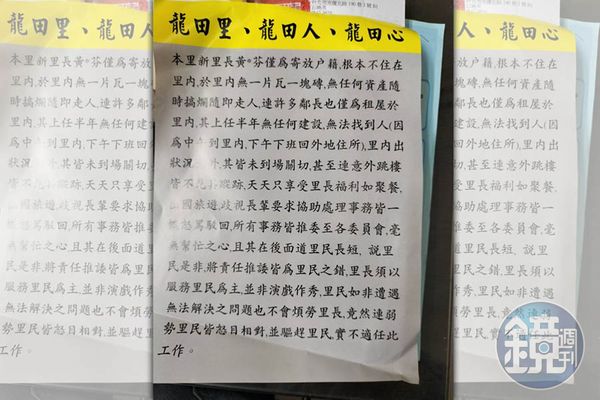 龍田里、龍田人、龍田心
本里新里長黃*芬僅為寄放户籍,根本不住在
里內,於里內無一片瓦一塊磚,無任何資產隨
時搞爛隨即走人,連許多鄰長也僅為租屋於
里內,其上任半年無任何建設,無法找到人(因
為中午到里內,下午下班回外地住所),里內出
狀況 外,其皆未到場關切,甚至連意外跳樓
皆不見 蹤跡,天天只享受里長福利如聚餐,
出國旅遊,歧視長輩要求協助處理事務皆一
概怒罵駁回,所有事務皆推委至各委員會,毫
無幫忙之心,且其在後面道里民長短, 說里
民是非,將責任推諉皆為里民之錯,里長須以
服務里民為主,並非演戲作秀,里民如非遭遇
無法解決之問題也不會煩勞里長,竟然連弱
勢里民皆怒目相對,並驅趕里民,實不適任此
工作。
鏡週刊